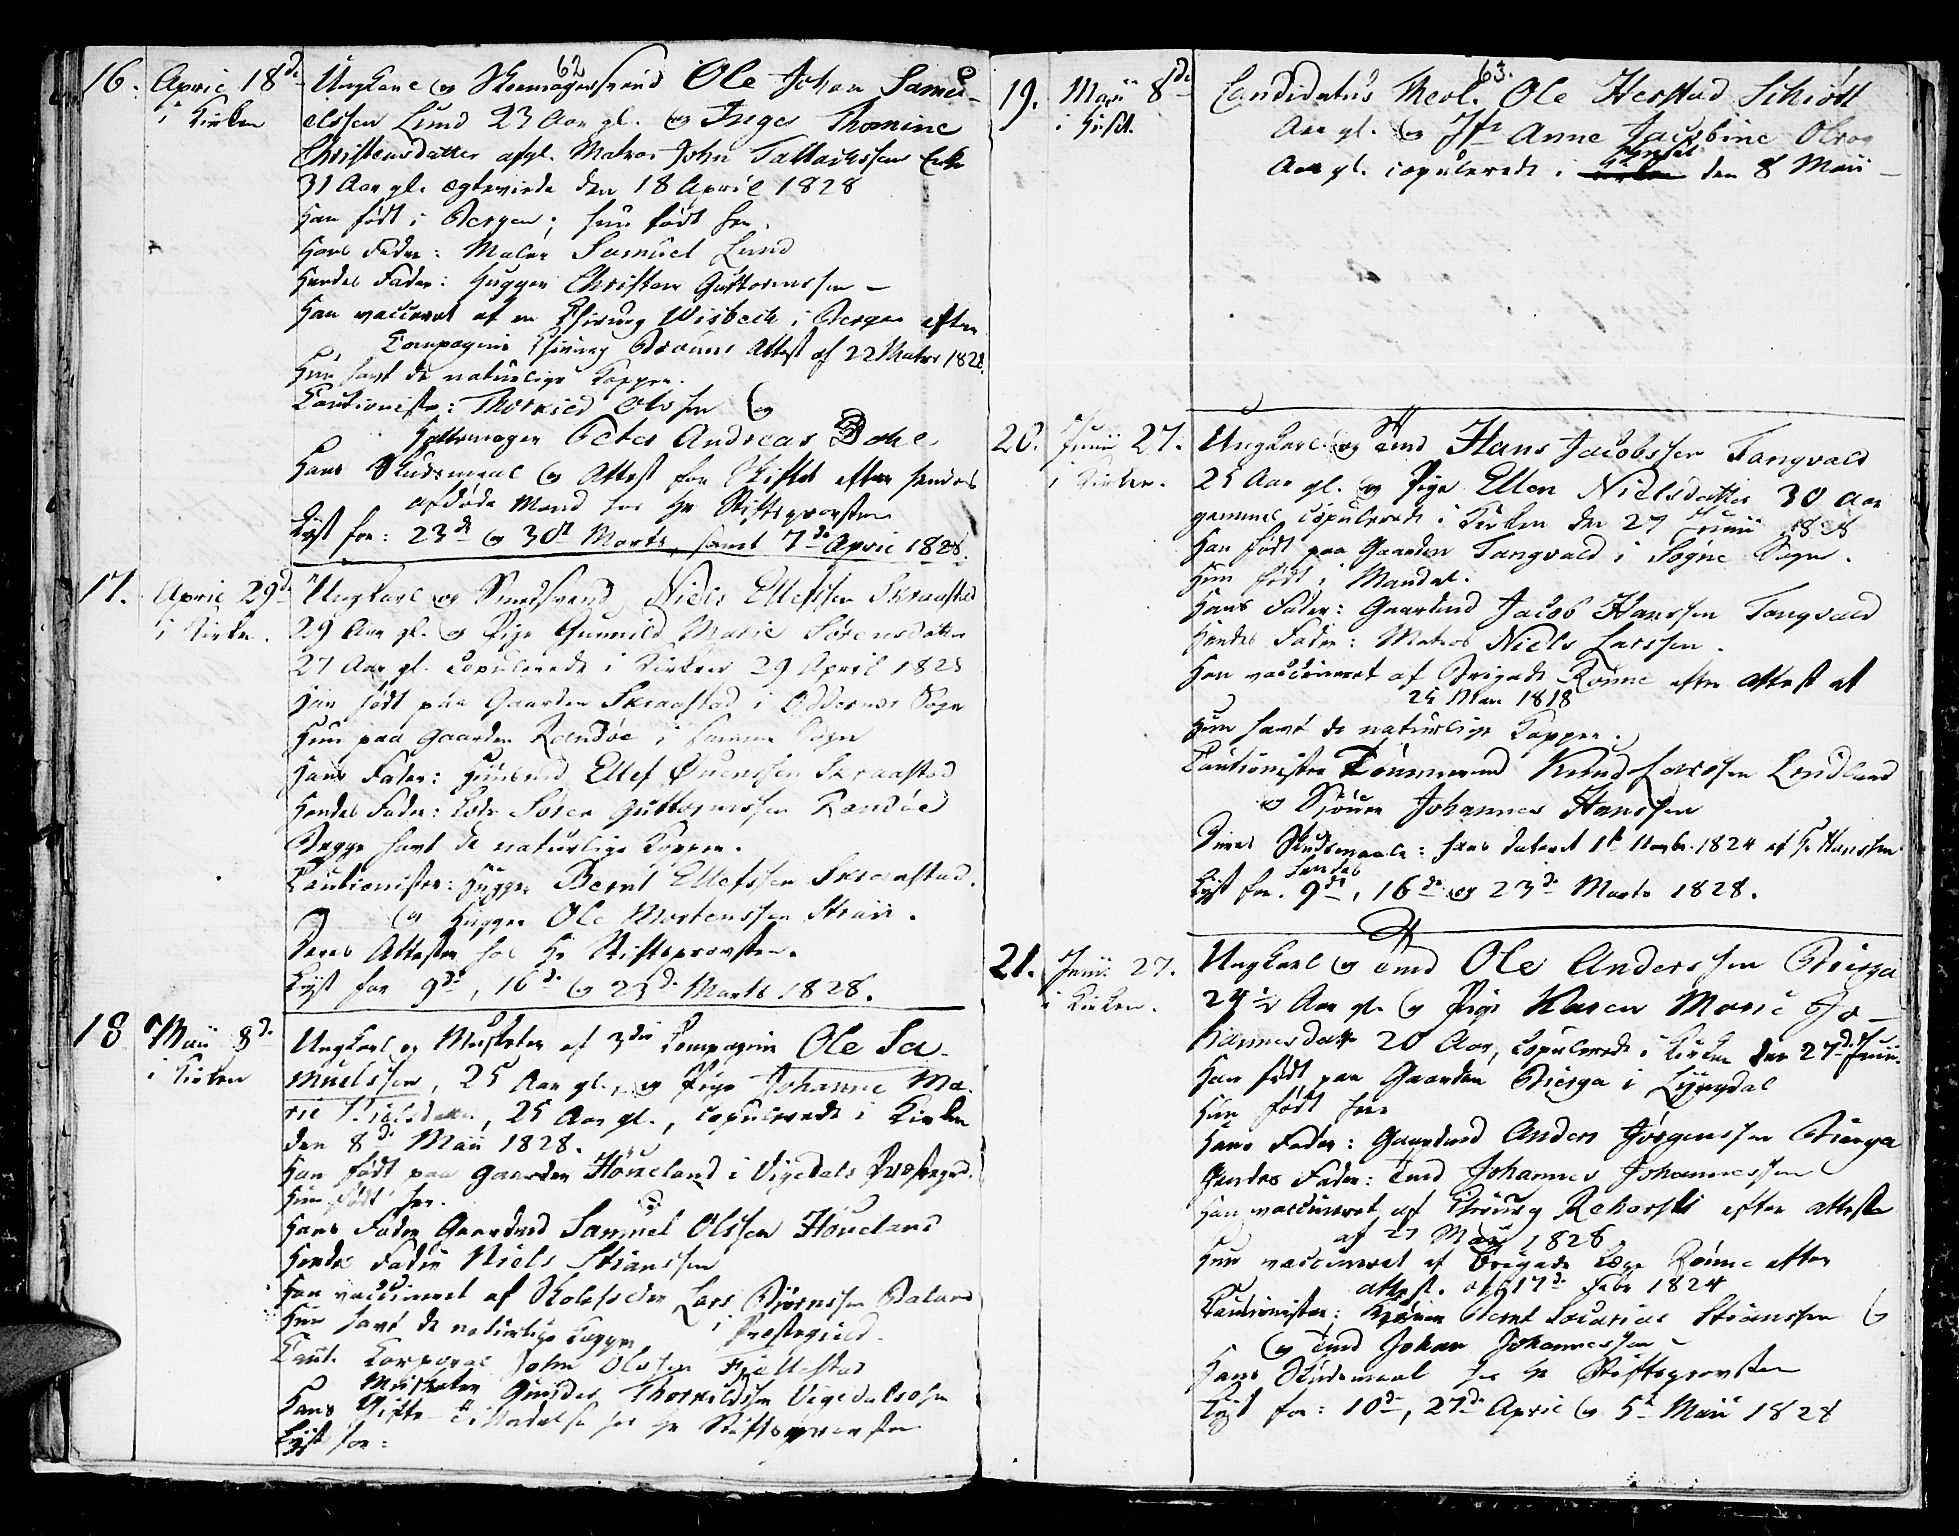 62
16. April 18de Ungkarl og Skomagersvend Ole Johan Samu-
i Kirken elssen Lund 23 Aar gl. og Inger Thomine
Christensdatter afgl. Matros John Tallachssens Enke
31 Aar gl. ægteviede den 18 April 1828
Han født i Bergen; hun født her.
Hans Fader: Maler Samuel Lund
Hendes Fader: Hugger Christen Guttormssen –
Han vaccineret af en Chirurg Wisbech i Bergen efter
Compagnie Chirurg Brauns Attest af 22 Marts 1828.
Hun havt de naturlige Kopper.
Cautionister: Thorkied Olsen og
Hattemager Peter Andreas Dahl
Hans Skudsmaal og Attest for Skiftet efter hendes
afdøde Mand hos Hr Stiftsprovsten
Lyst for: 23de og 30te Marts, samt 7de April 1828.
17. April 29de Ungkarl og Smedsvend Niels Ellefssen Skraastad
i Kirken. 29 Aar gl. og Pige Gunnild Marie Sørensdatter
27 Aar gl. copulerede i Kirken 29 April 1828
Han født paa Gaarden Skraastad i Oddernes Sogn
Hun paa Gaarden Randøe i samme Sogn
Hans Fader: Huusmd Ellef Ouenssen Skraastad
Hendes Fader: Søren Guttormssen Randøe
Begge havt de naturlige Kopper.
Cautionister: Hugger Bernt Ellefssen Skraastad.
og Hugger Ole Mortenssen Strai.
Deres Attester hos Hr Stiftsprovsten.
Lyst for 9de, 16de og 23de Marts 1828.
18 Maii 8de Ungkarl og Musketer af 3die Compagnie Ole Sa-
i Kirken muelssen, 25 Aar gl., og Pige Johanne Ma-
rie Nielsdatter, 25 Aar gl., copulerede i Kirken
den 8de Maii 1828.
Han født paa Gaarden Høueland i Vigedals Præstegd.
Hun født her.
Hans Fader Gaardmd Samuel Olssen Høueland
Hendes Fader Niels Stianssen
Han vaccineret af Skoleholder Lars Biørnssen
Hun havt de naturlige Kopper i Præstegield.
Caut. Corporal John Olssen Fjellestad
Musketer Gunder Thorkildsen Vigedalsøen
Hans Gifte-Tilladelse hos Hr Stiftsprovsten
Lyst for:
63.
19. Maii 8de Candidatus Theol. Ole Herstad Schiøtt
i Huset. Aar gl. og Jfr Anne Jacobine Olrog
Aar gl. copulerede i Huset den 8 Maii –
20. Junii 27. Ungkarl og Tmd Hans Jacobssen Tangvald
i Kirken. 25 Aar gl. og Pige Ellen Nielsdatter 30 Aar
gammel copulerede i Kirken den 27 Junii 1828
Han født paa Gaarden Tangvald i Søgne Sogn.
Hun født i Mandal.
Hans Fader: Gaardmd Jacob Hanssen Tangvald
Hendes Fader: Matros Niels Larssen.
Han vaccineret af Brigade Rønne efter Attest af
25 Mai 1818
Hun havt de naturlige Kopper.
Cautionister Tømmermd Knud Larssen Lindland
og Skiøtte Johannes Hanssen
Deres Skudsmaale: hans dateret 1te Novbr. 1824 af Hr Hanssen
hendes
Lyst for. 9de, 16de og 23de Marts 1828.
21. Junii 27. Ungkarl og Tmd Ole Anderssen Bierga
i Kirken. 24½ Aar gl. og Pige Karen Marie Jo-
hannesdatter 20 Aar, copulerede i Kirken den 27de Junii.
Han født paa Gaarden Bierga i Lyngdal
Hun født her
Hans Fader: Gaardmd Anders Jørgenssen Bierga
Hendes Fader: Tmd Johannes Johannessen
Han vaccineret af Chirurg Rehorski efter Attest
af 27 Maii 1828
Hun vaccineret af Brigade Læge Rønne efter
Attest. af 17de Febr 1824
Cautionister: Bernt Zacarias Stianssen
og Tmd Johan Johannessen
Hans Skudsmaal hos Hr Stiftsprovsten
Lyst for: 10de, 27de April og 5te Maii 1828